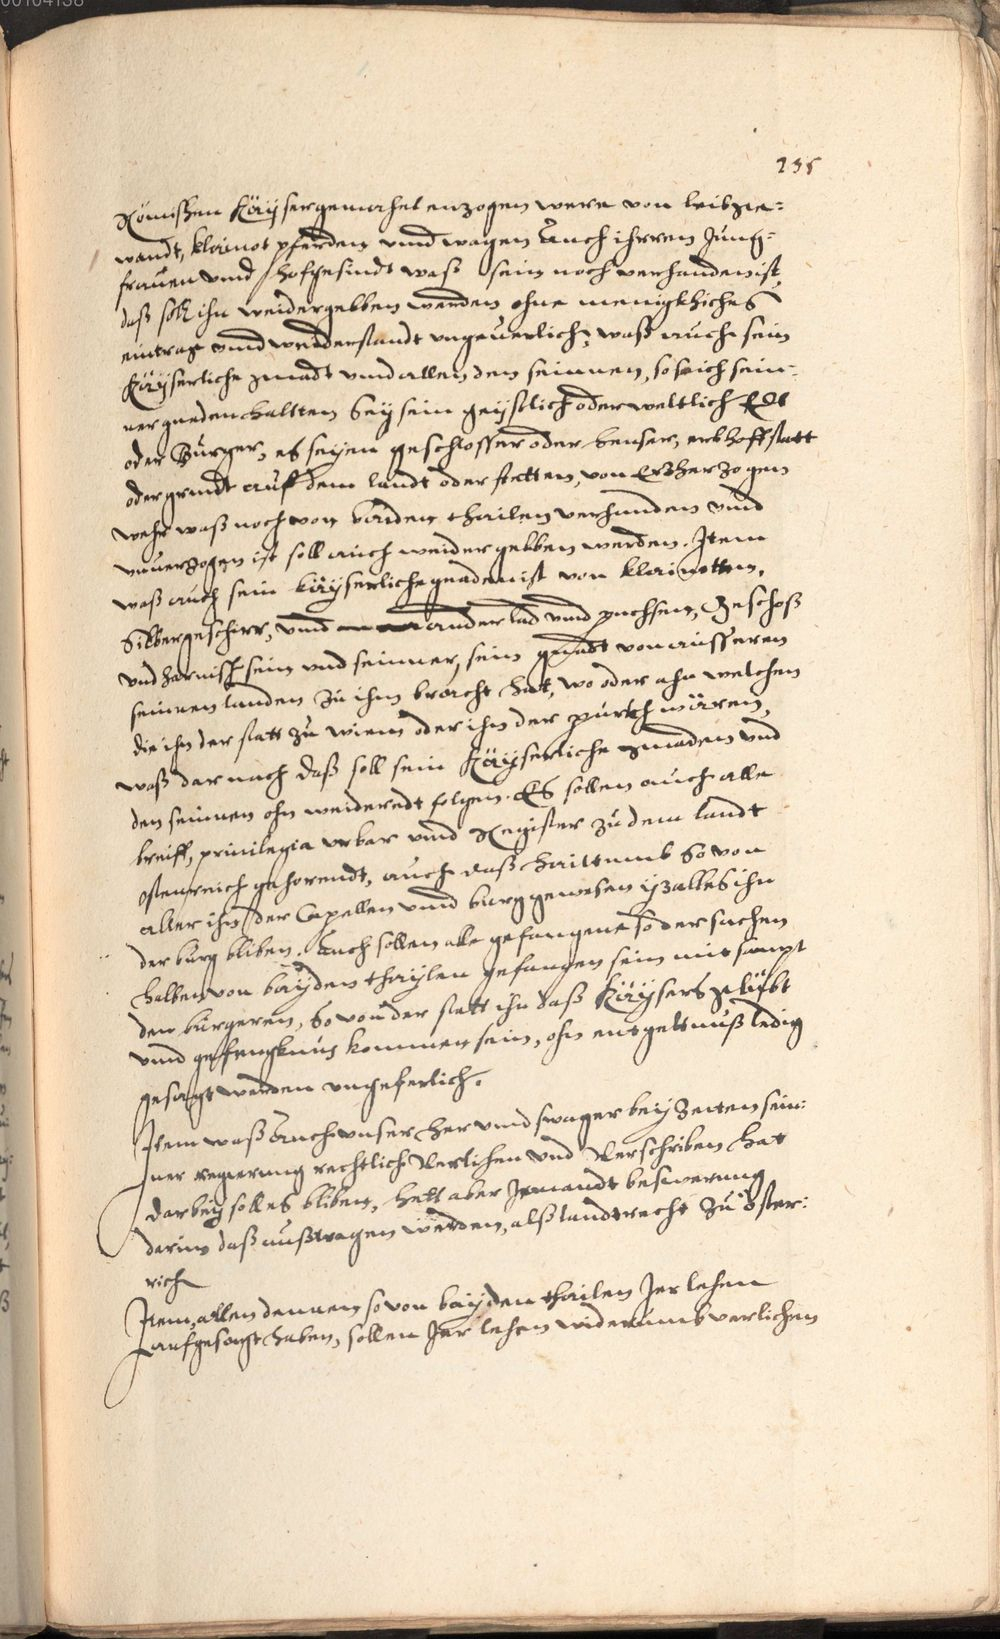 00104138
235
Römishen Kaÿsergemahel enzogen were von leibge=
wandt, klainot pferden vnnd wagen Auch ihrren Jung=
frauen vnnd hofgesindt waß sein noch verhanden ist,
daß soll ihn weidergebben werden ohne menigkliches
eintrag vnnd widderstandt vngeuerlich, waß auch sein
Kaÿserliche gnadt vnnd allen den seinnen, so seich sein=
ner gneden haltten Seÿ sein geÿstlich oder weltlich Edl
oder Burger, es seÿen geschlosser oder heuser, erbhoffstatt
oder grundt auff dem landt oder stetten, von Ertzherzogen
wehr waß noch von baiden thailen verhanden vnnd
vnuerzogen ist soll auch weidergebben werden. Item
waß auch sein kaÿserliche gnaden ist von klainotten,
Silbergeschirr, vnnd ander lad vnnd puchsen, Geschoß
vnd harnisch sein vnd seinner, sein gnadt von ausseren
seinnen landen zu ihm bracht hat, wo oder ahn welchen
die ihn der statt zu wienn oder ihn der purkh wären,
waß dar nach daß soll sein Kaÿserliche gnaden vnd
den seinnen ohn weideredt folgen. Es sollen auch alle
breiff, priuilegia vrbar vnnd Register zu dem landt
Osterreich gehorendt, auch daß hailtumb So von
aller ihn der Capellen vnnd burg gewesen ist alles ihn
der burg bliben. Auch sollen alle gefangene so der sachen
halben von baÿden thaÿlen gefangen sein mit sampt
den burgeren, So von der statt ihn daß Kaÿsers glübt
vnnd gefengknus kommen sein, ohn entgeltnuß ledig
gesagt werden vngeferlich.
Item waß Auch vnser her vnnd swager beÿ Zeiten sein=
ner regierung rechtlich Verlihen vnd Verschriben hat
darbeÿ soll es bliben, hett aber Jemandt beswerung
darin daß außtragen werden, alß landtrecht zu Öster=
rich
Item, allen dennen so von baÿden thailen Jer lehen
aufgesagt haben, sollen Jer lehen widerumb verlichen